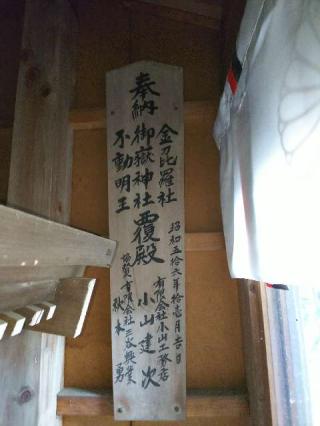 奉納
金毘羅社
御嶽神社
不動明王
覆殿
昭和五拾六年拾壱月吉日
有限会社小山工務店
小山建次
協賛有限会社三永興業
秋本勇